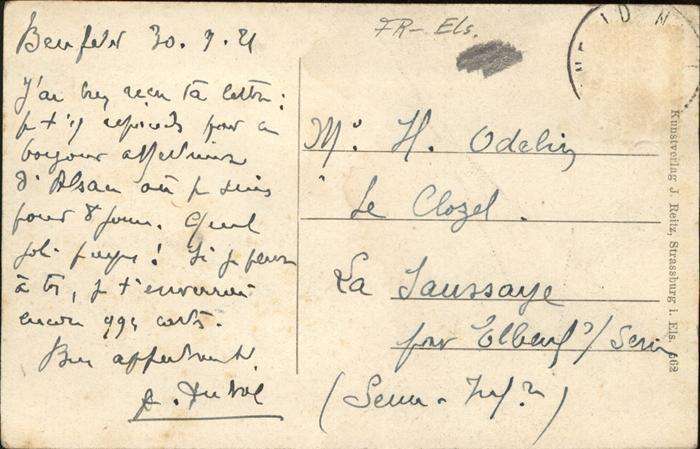 Benfeld 30.7.21
J'ai bien reçu ta lettre :
je t'y réponds par un
bonjour affectueux
d'Alsace où je suis
pour 8 jours. Quel
joli pays ! Si je pense
à toi, je t'enverrai
encore qqs cartes.
Bien affectueusement,
FR- Els.
Mr. H. Odelin
Le Clozel.
La Saussaye
par Elbeuf s/ Seine
(Seine-Inf.re)
Kunstverlag J. Reitz, Strassburg i. Els. 462